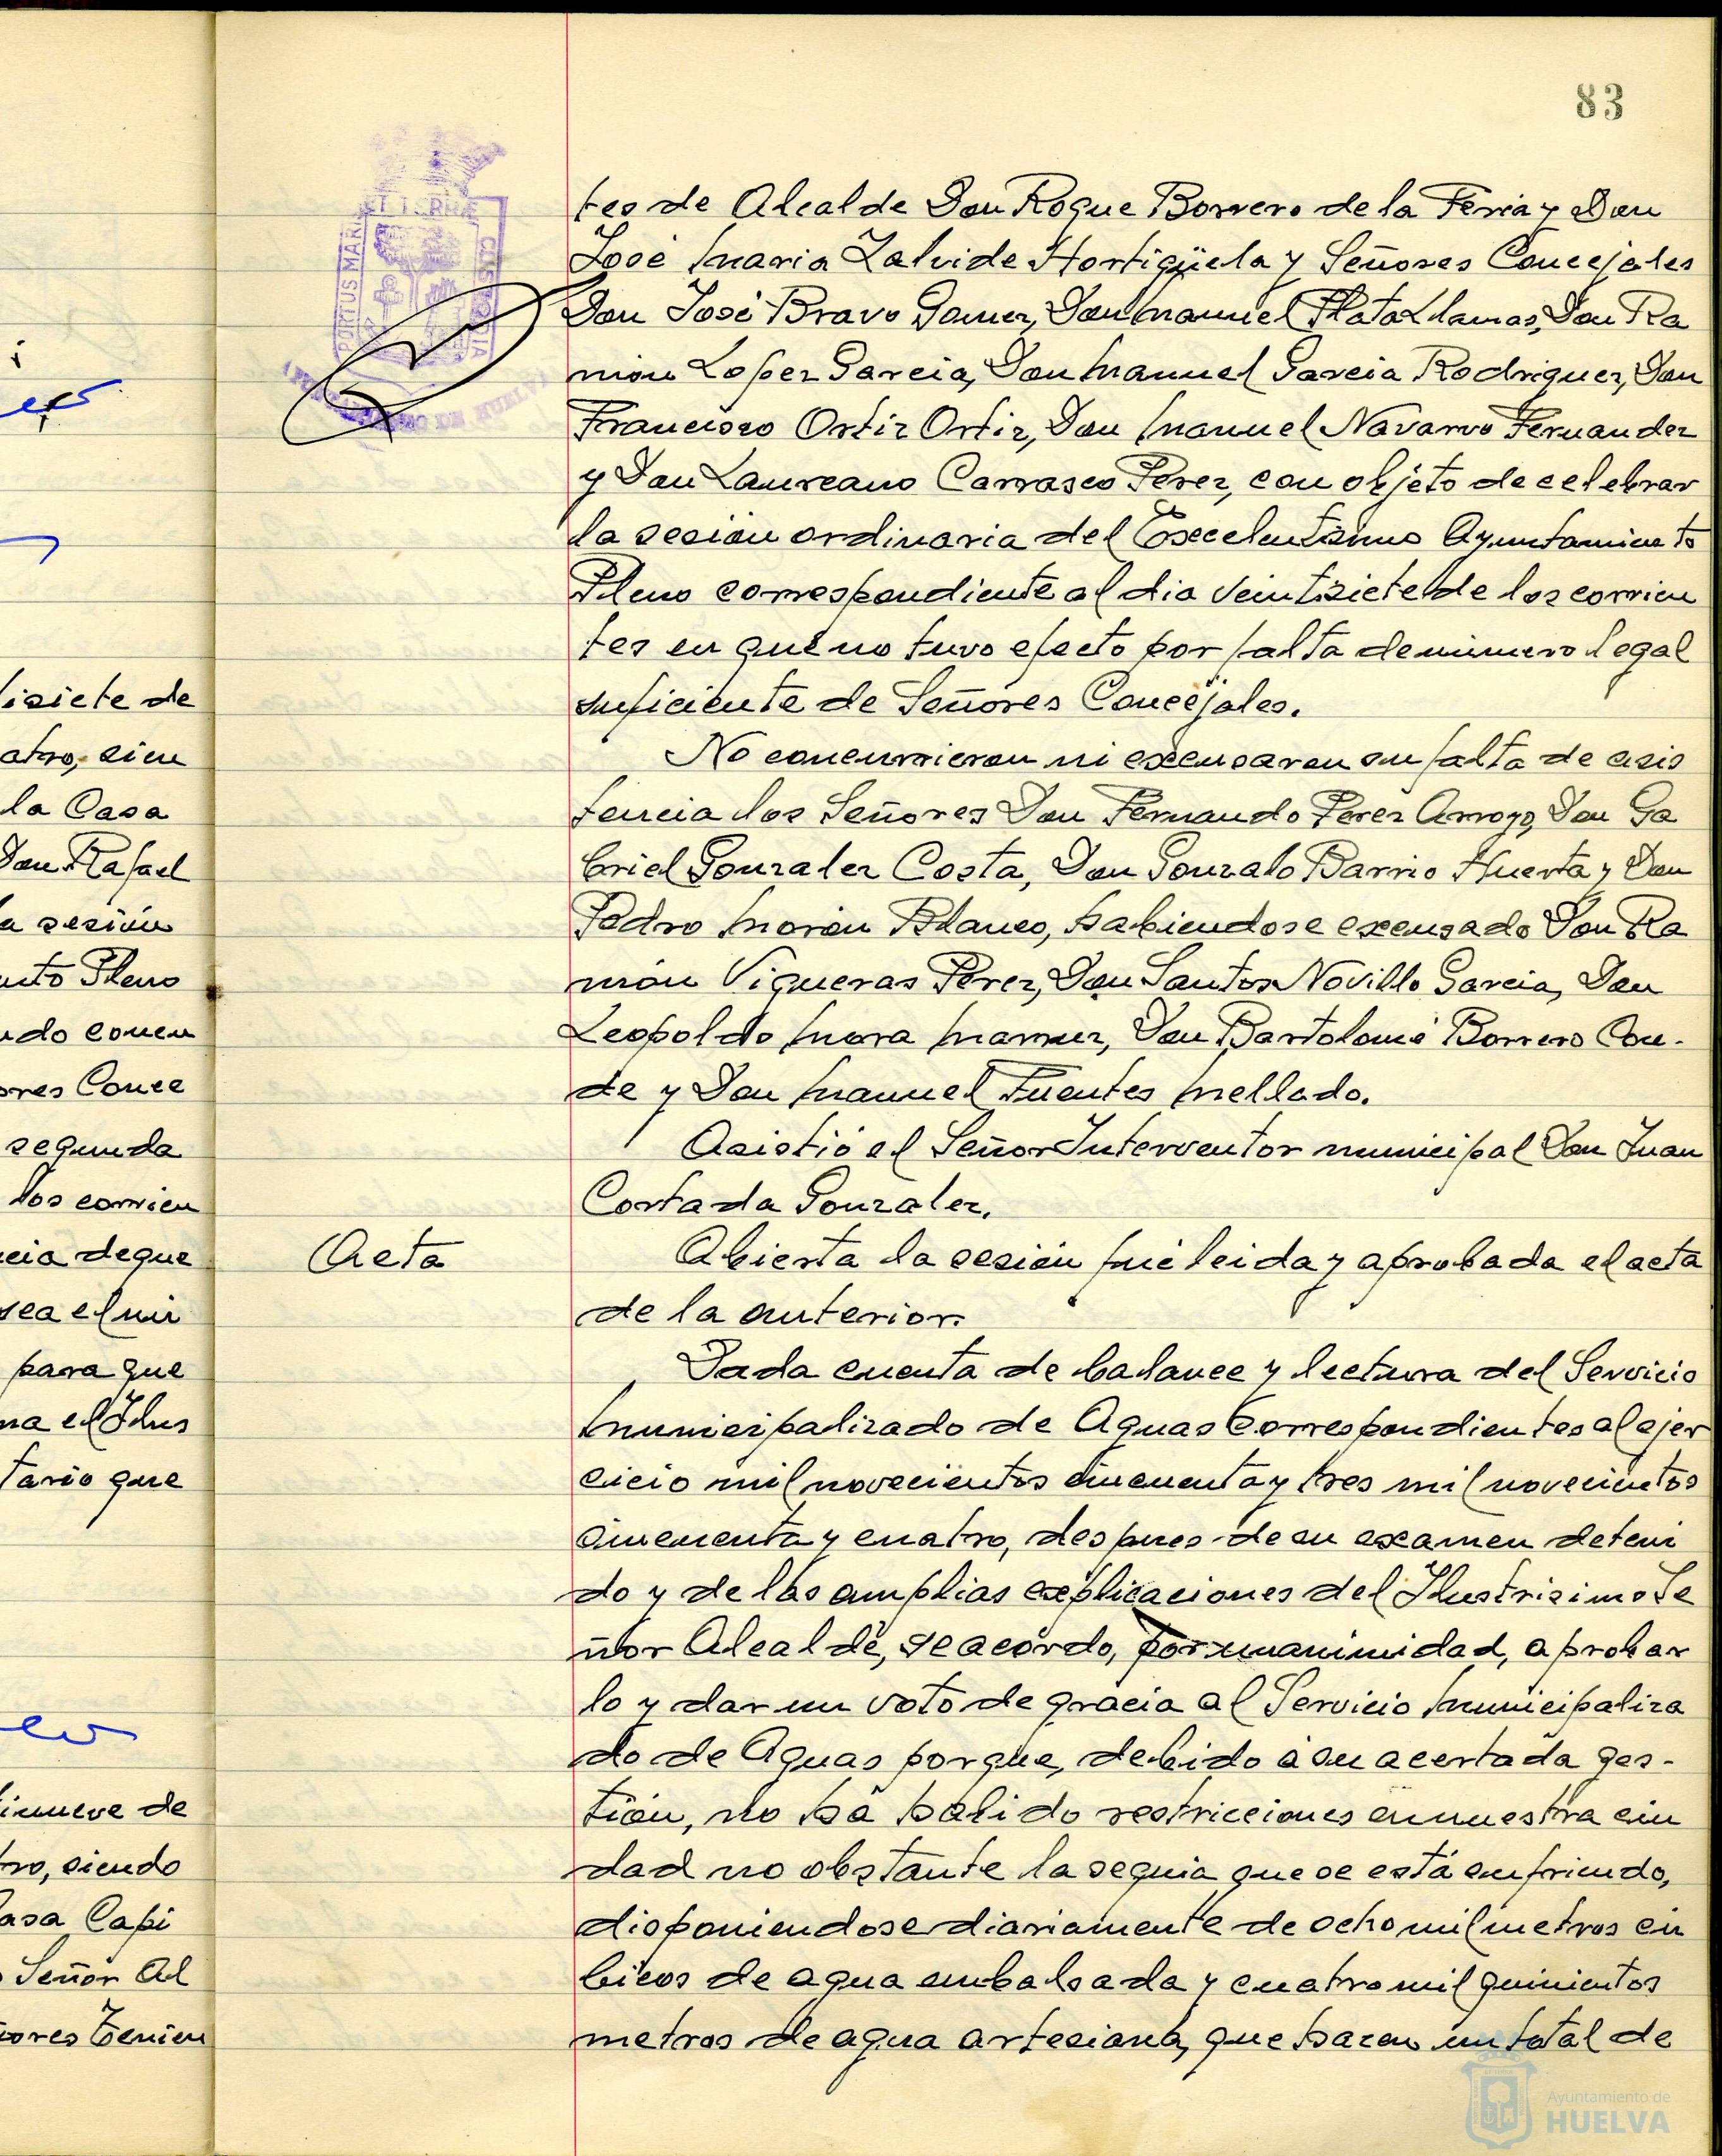 83
tes de Alcalde Don Roque Borrero de la Feria y Don
José Maria Zalvide Hortigüela y Señores Concejales
Don José Bravo Gomez, Don Manuel Plata Llamas, Don Ra
mon Lopez Garcia, Don Manuel Garcia Rodriguez, Don
Francisco Ortiz Ortiz, Don Manuel Navarro Fernandez
y Don Laureano Carrasco Perez, con objeto de celebrar
la sesión ordinaria del Excelentisimo Ayuntamiento
Pleno correspondiente al dia veintisiete de los corrien
tes en que no tuvo efecto por falta de número legal
suficiente de Señores Concejales.
No concurrieron ni excusaron su falta de asis
tencia los Señores Don Fernando Perez Arroyo, Don Ga
briel Gonzalez Costa, Don Gonzalo Barrio Huerta y Don
Pedro Morón Blanco, habiendose excusado Don Ra
món Vigueras Perez, Don Santos Novillo Garcia, Don
Leopoldo Mora Don Bartolomé Borrero Con-
de y Don Manuel Fuentes Mellado.
Asistió el Señor Interventor municipal Don Juan
Cortada Gonzalez.
Acta
Abierta la sesión fué leida y aprobada el acta
de la anterior.
Dada cuenta de balance y lectura del Servicio
Municipalizado de Aguas correspondientes al ejer
cicio mil novecientos cincuenta y tres mil novecientos
cincuenta y cuatro, despues de su examen deteni
do y de las amplias explicaciones del Ilustrisimo Se
ñor Alcalde, se acordo, por unanimidad, aprobar
lo y dar un voto de gracia al Servicio Municipaliza
do de Aguas porque, debido a su acertada ges-
tión, no ha habido restricciones en nuestra ciu
dad no obstante la sequia que se está sufriendo,
disponiendose diariamente de ocho mil metros cú
bicos de agua embalsada y cuatro mil quinientos
metros de agua artesiana, que hacen un total de
isiete de
atro, sien
la Casa
Don Rafael
a sesión
nto Pleno
ndo concu
ores Conce
segunda
los corrien
cia de que
sea el nú
para que
na el Ilus
tario que
inueve de
tro, siendo
Casa Capi
Señor Al
ñores Tenien
PORTUS MARIS ET TERRAE CUSTODIA
AYUNTAMIENTO DE HUELVA
Ayuntamiento de
HUELVA